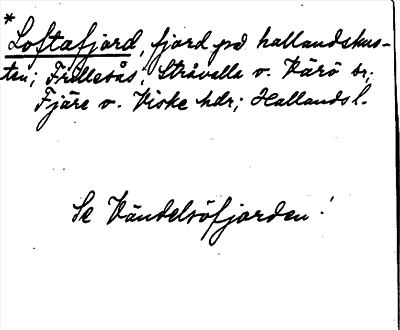 *
Loftafjord, fjord på hallandskus-
ten; Frillesås, Stråvalla o. Värö sr;
Fjäre o. Viske hdr; Hallands l.
Se Vändelsöfjorden!